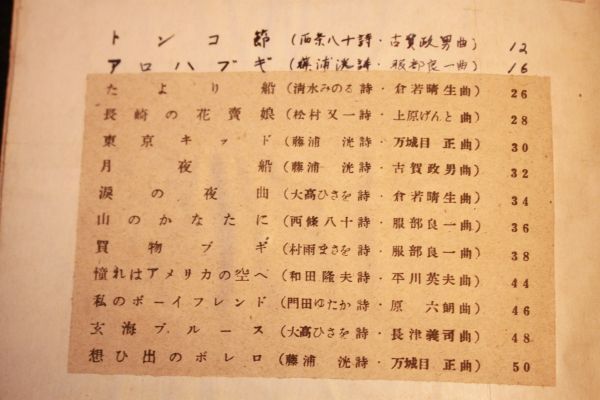 トンコ節(西条八十詩・古賀政男曲) 12
アロハブギ(藤浦洸詩・服部良一曲) 16
たより船(清水みのる詩・倉若晴生曲) 26
長崎の花賣娘(松村又一詩・上原げんと曲) 28
東京キッド(藤浦洸詩・万城目正曲) 30
月夜船(藤浦洸詩・古賀政男曲) 32
涙の夜曲(大高ひさを詩・倉若晴生曲) 34
山のかなたに(西條八十詩・服部良一曲) 36
買物ブギ(村雨まさを詩・服部良一曲) 38
憧れはアメリカの空へ(和田隆夫詩・平川英夫曲) 44
私のボーイフレンド(門田ゆたか詩・原六朗曲) 46
玄海ブルース(大高ひさを詩・長津義司曲) 48
想ひ出のボレロ(藤浦洸詩・万城目正曲) 50